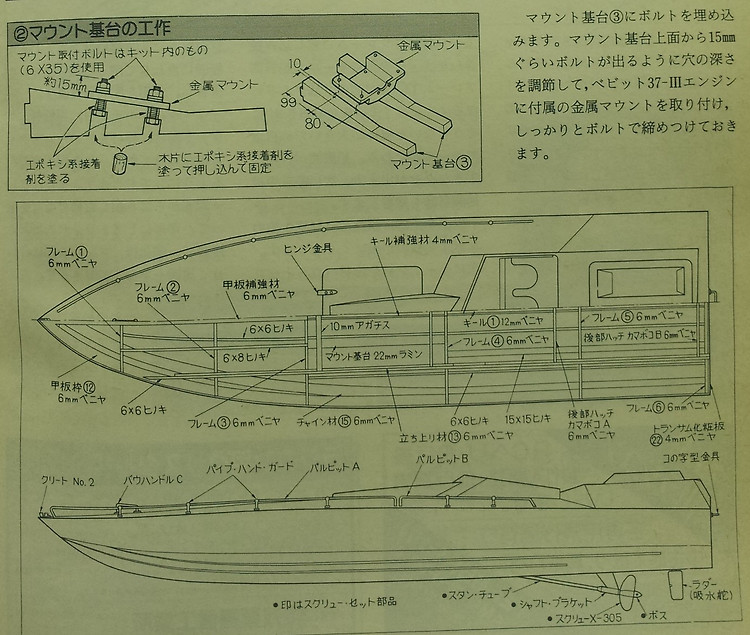 ②マウント基台の工作
マウント取付ボルトはキット内のもの
(6×35)を使用
約15mm
金属マウント
エポキシ系接着
剤を塗る
木片にエポキシ系接着剤を
塗って押し込んで固定
金属マウント
10
99
80
マウント基台③
マウント基台③にボルトを埋め込
みます。マウント基台上面から15mm
ぐらいボルトが出るように穴の深さ
を調節して,ペビット37-Ⅲエンジン
に付属の金属マウントを取り付け,
しっかりとボルトで締めつけておき
ます。
フレーム①
6mmベニヤ
フレーム②
6mmベニヤ
甲板補強材
6mmベニヤ
ヒンジ金具
キール補強材 4mmベニヤ
6×6ヒノキ
6×8ヒノキ
10mmアガチス
マウント基台 22mmラミン
キール①12mmベニヤ
フレーム④ 6mmベニヤ
フレーム⑤ 6mmベニヤ
後部ハッチ カマボコB 6mmベニヤ
甲板枠⑫
6mmベニヤ
6×6ヒノキ
フレーム③ 6mmベニヤ
チャイン材⑮ 6mmベニヤ
立ち上り材⑬ 6mmベニヤ
6×6ヒノキ
15×15ヒノキ
後部ハッチ
カマボコA
6mmベニヤ
フレーム⑥ 6mmベニヤ
トランサム化粧板
㉒ 4mmベニヤ
クリート No.2
バウハンドルC
パイプ・ハンド・ガード
パルピットA
パルピットB
コの字型金具
●印はスクリュー・セット部品
●スタン・チューブ
●シャフト・ブラケット
●スクリューX-305
●ボス
ラダー
(吸水舵)